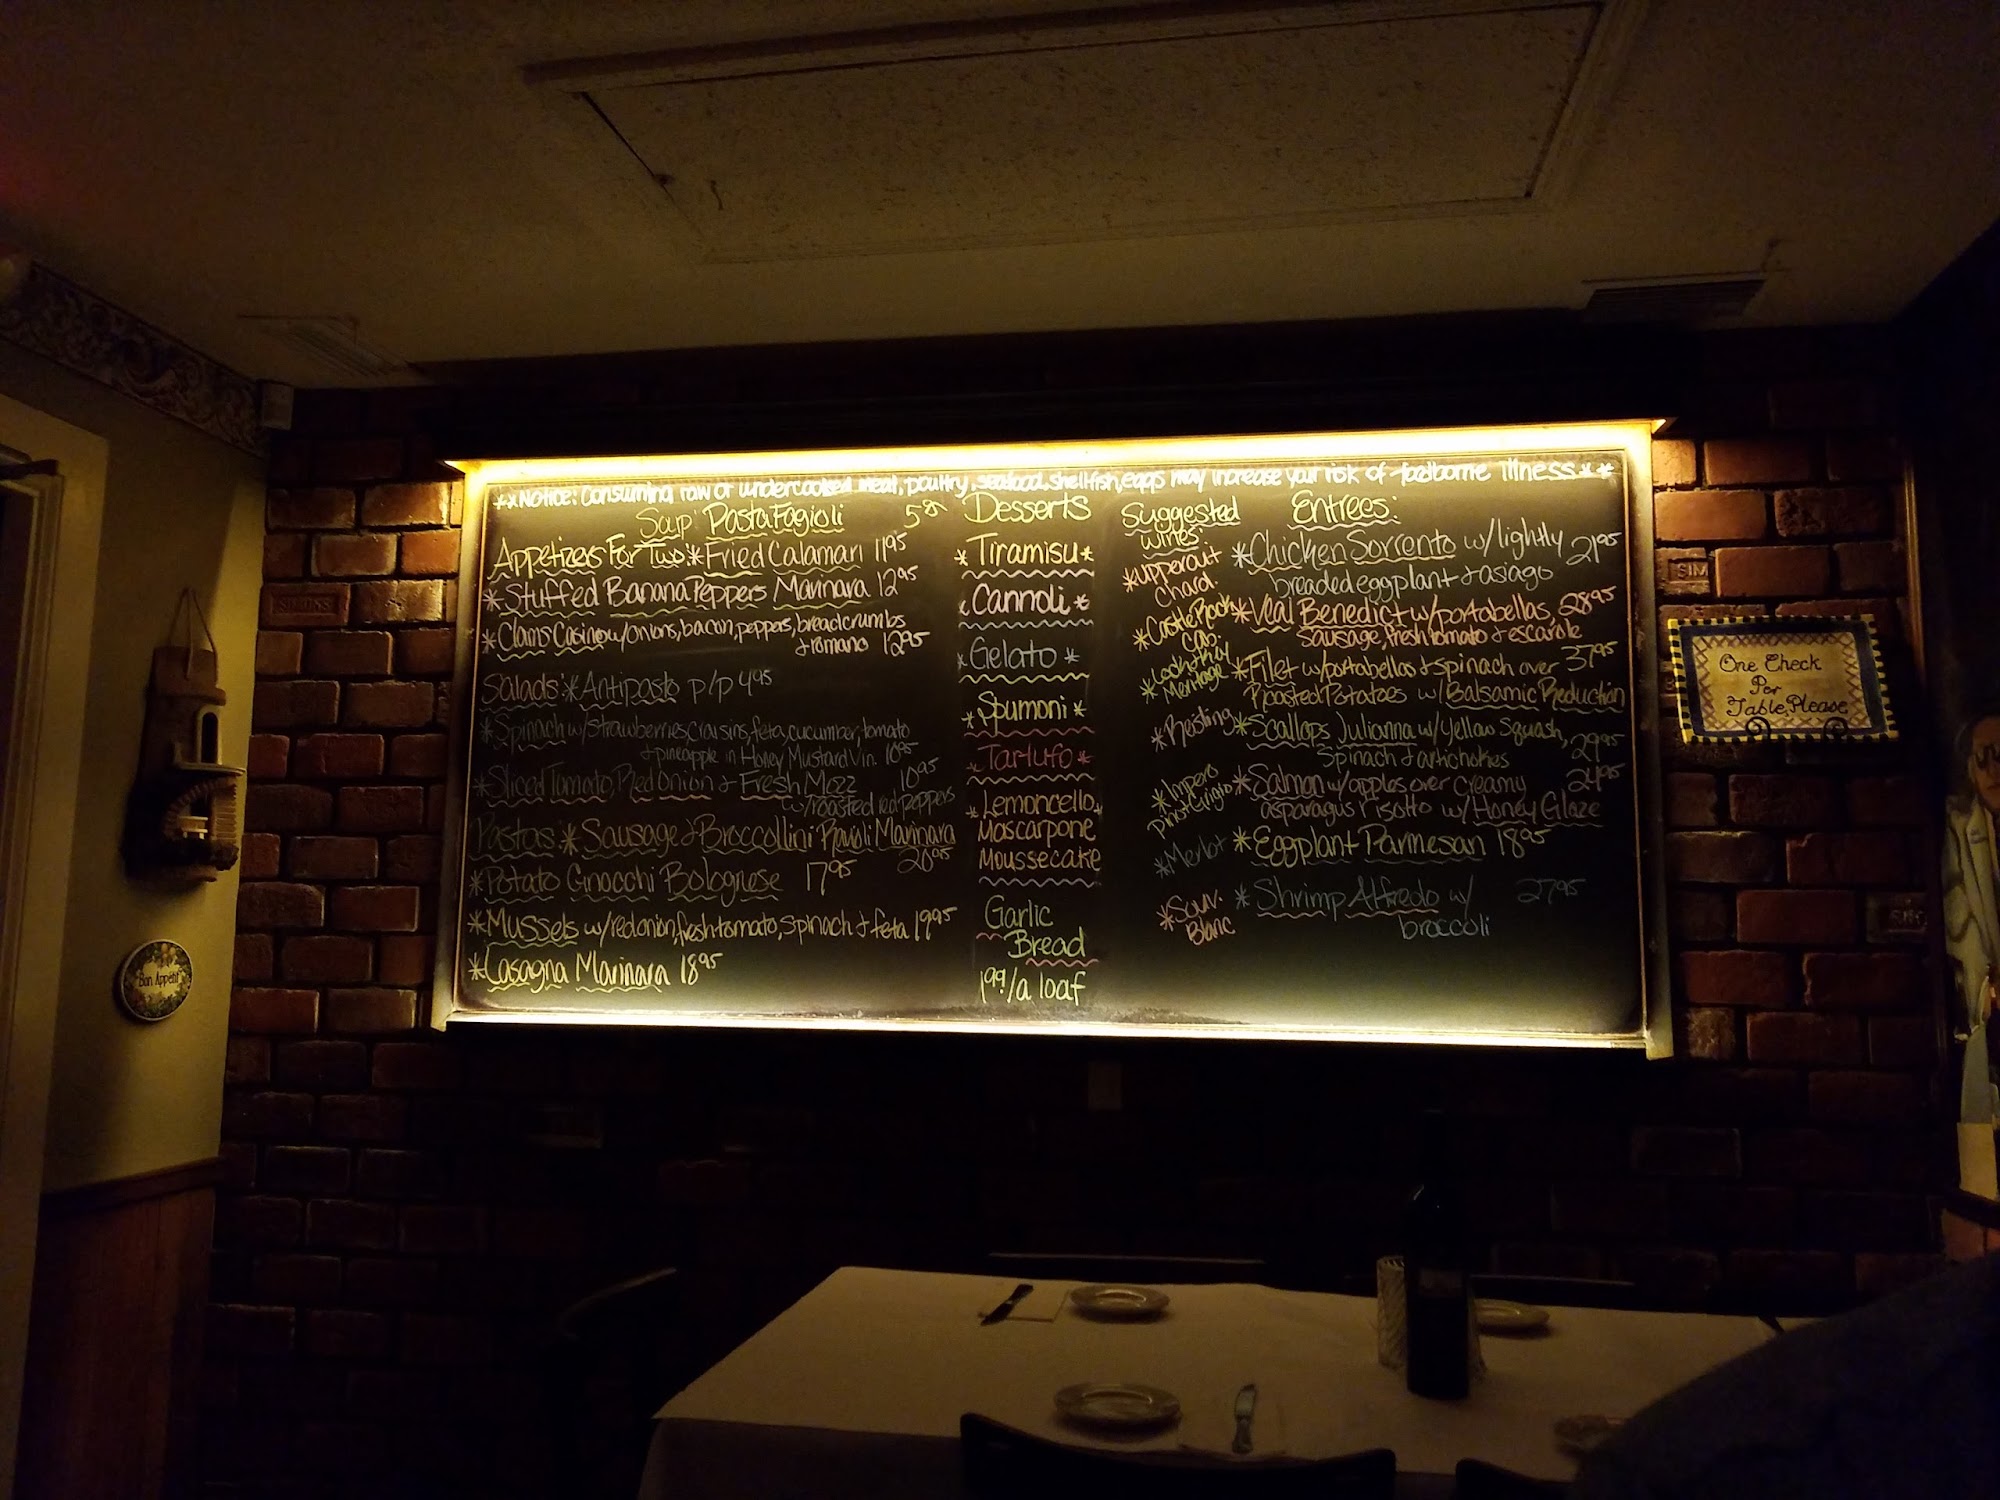 **Notice: Consuming raw or undercooked meat, poultry, seafood, shellfish, eggs may increase your risk of foodborne illness**
Soup: Pasta Fagioli
Appetizers For Two: *Fried Calamari 11.95
*Stuffed Banana Peppers Marinara 12.95
*Clams Casino w/onions, bacon, peppers, breadcrumbs
& romano 12.95
Salads: *Antipasto p/p 4.95
*Spinach w/strawberries, craisins, feta, cucumber, tomato
& pineapple in Honey Mustard Vin. 10.95
*Sliced Tomato, Red Onion & Fresh Mozz 10.95
w/roasted red peppers
Pastas: *Sausage & Broccollini Ravioli Marinara
20.95
*Potato Gnocchi Bolognese 17.95
*Mussels w/red onion, fresh tomato, spinach & feta 19.95
*Lasagna Marinara 18.95
Desserts
*Tiramisu*
*Cannoli*
*Gelato*
*Spumoni*
*Tartufo*
*Lemoncello*
Mascarpone
Moussecake
Garlic
Bread
1.99/a loaf
Suggested
Wines:
*Uppercut
Chard.
*Castle Rock
Cab.
*Meritage
*Reisling
*Impero
Pinot Grigio
*Merlot
*Sauv.
Blanc
Entrees:
*Chicken Sorrento w/lightly 21.95
breaded eggplant & asiago
*Veal Benedict w/portabellas, 28.95
sausage, fresh tomato & escarole
*Filet w/portabellas & spinach over 37.95
Roasted Potatoes w/Balsamic Reduction
*Scallops Julianna w/Yellow Squash,
Spinach & artichokes 29.95
*Salmon w/apples over creamy 24.95
asparagus risotto w/Honey Glaze
*Eggplant Parmesan 18.95
*Shrimp Alfredo w/ 27.95
broccoli
One Check
Per
Table, Please
Bon Appetit